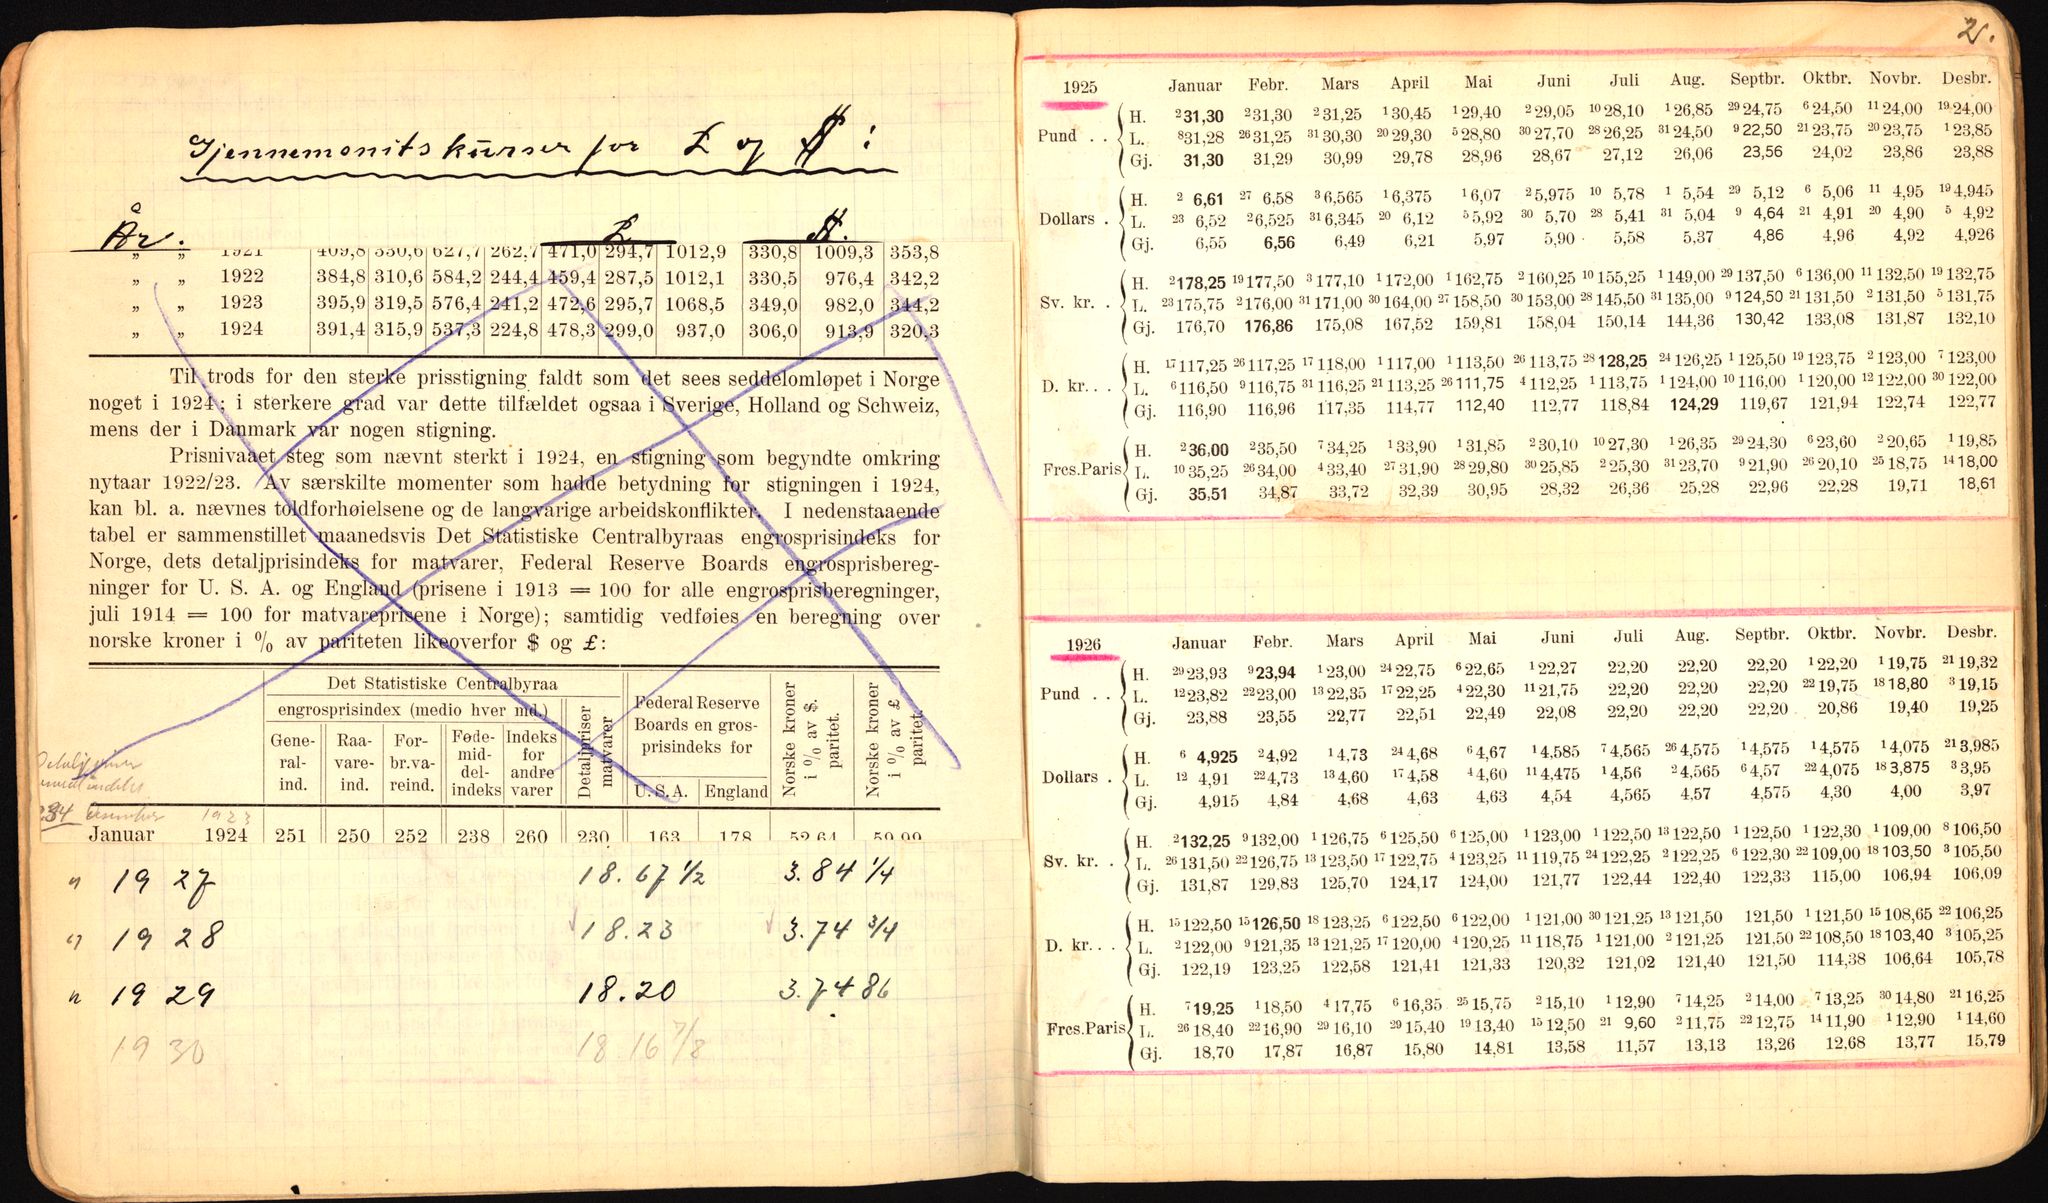 Gjennemsnitskurser for £ og $:
År. £ $.
„ „ 1921 409,8 330,6 627,7 262,7 471,0 294,7 1012,9 330,8 1009,3 353,8
„ „ 1922 384,8 310,6 584,2 244,4 459,4 287,5 1012,1 330,5 976,4 342,2
„ „ 1923 395,9 319,5 576,4 241,2 472,6 295,7 1068,5 349,0 982,0 344,2
„ „ 1924 391,4 315,9 537,3 224,8 478,3 299,0 937,0 306,0 913,9 320,3
Til trods for den sterke prisstigning faldt som det sees seddelomløpet i Norge
noget i 1924; i sterkere grad var dette tilfældet ogsaa i Sverige, Holland og Schweiz,
mens der i Danmark var nogen stigning.
Prisnivaaet steg som nævnt sterkt i 1924, en stigning som begyndte omkring
nytaar 1922/23. Av særskilte momenter som hadde betydning for stigningen i 1924,
kan bl. a. nævnes toldforhøielsene og de langvarige arbeidskonflikter. I nedenstaaende
tabel er sammenstillet maanedsvis Det Statistiske Centralbyraas engrosprisindeks for
Norge, dets detaljprisindeks for matvarer, Federal Reserve Boards engrosprisbereg-
ninger for U. S. A. og England (prisene i 1913 = 100 for alle engrosprisberegninger,
juli 1914 = 100 for matvareprisene i Norge); samtidig vedføies en beregning over
norske kroner i % av pariteten likeoverfor $ og £:
Det Statistiske Centralbyraa
engrosprisindex (medio hver md.)
Gene-
ral-
ind.
Raa-
vare-
ind.
For-
br.va-
reind.
Føde-
mid-
del-
indeks
Indeks
for
andre
varer
Detaljpriser
matvarer
Federal Reserve
Boards en gros-
prisindeks for
U. S. A. England
Norske kroner
i % av $.
paritet.
Norske kroner
i % av £
paritet.
234 desember 1923
Januar 1924 251 250 252 238 260 230 163 178 52,64 59,99
„ 1927 18.67 1/2 3.84 1/4
„ 1928 18.23 3.74 3/4
„ 1929 18.20 3.74 86
1930 18 16 7/8
2.
1925 Januar Febr. Mars April Mai Juni Juli Aug. Septbr. Oktbr. Novbr. Desbr.
H. ²31,30 ²31,30 ²31,25 ¹30,45 ¹29,40 ²29,05 ¹⁰28,10 ¹26,85 ²⁹24,75 ⁶24,50 ¹¹24,00 ¹⁹24,00
Pund . . L. ⁸31,28 ²⁶31,25 ³¹30,30 ²⁰29,30 ⁵28,80 ³⁰27,70 ²⁸26,25 ³¹24,50 ⁹22,50 ²¹23,75 ²⁰23,75 ¹23,85
Gj. 31,30 31,29 30,99 29,78 28,96 28,67 27,12 26,06 23,56 24,02 23,86 23,88
H. ²6,61 ²⁷6,58 ³6,565 ¹6,375 ¹6,07 ²5,975 ¹⁰5,78 ¹5,54 ²⁹5,12 ⁶5,06 ¹¹4,95 ¹⁹4,945
Dollars . L. ²³6,52 ²6,525 ³¹6,345 ²⁰6,12 ⁵5,92 ³⁰5,70 ²⁸5,41 ³¹5,04 ⁹4,64 ²¹4,91 ²⁰4,90 ⁵4,92
Gj. 6,55 6,56 6,49 6,21 5,97 5,90 5,58 5,37 4,86 4,96 4,92 4,926
H. ²178,25 ¹⁹177,50 ³177,10 ¹172,00 ¹162,75 ²160,25 ¹⁰155,25 ¹149,00 ²⁹137,50 ⁶136,00 ¹¹132,50 ¹⁹132,75
Sv. kr. . L. ²³175,75 ²176,00 ³¹171,00 ³⁰164,00 ²⁷158,50 ³⁰153,00 ²⁸145,50 ³¹135,00 ⁹124,50 ²¹131,50 ²131,50 ⁵131,75
Gj. 176,70 176,86 175,08 167,52 159,81 158,04 150,14 144,36 130,42 133,08 131,87 132,10
H. ¹⁷117,25 ²⁶117,25 ¹⁷118,00 ¹117,00 ¹113,50 ²⁶113,75 ²⁸128,25 ²⁴126,25 ¹125,50 ¹⁹123,75 ²123,00 ⁷123,00
D. kr. . . L. ⁶116,50 ⁹116,75 ³¹116,25 ²¹113,25 ²⁶111,75 ⁴112,25 ¹113,75 ¹124,00 ¹⁰116,00 ¹120,00 ¹²122,00 ³⁰122,00
Gj. 116,90 116,96 117,35 114,77 112,40 112,77 118,84 124,29 119,67 121,94 122,74 122,77
H. ²36,00 ²35,50 ⁷34,25 ¹33,90 ¹31,85 ²30,10 ¹⁰27,30 ¹26,35 ²⁹24,30 ⁶23,60 ²20,65 ¹19,85
Frcs.Paris L. ¹⁰35,25 ²⁶34,00 ⁴33,40 ²⁷31,90 ²⁸29,80 ³⁰25,85 ²25,30 ³¹23,70 ⁹21,90 ²⁶20,10 ²⁵18,75 ¹⁴18,00
Gj. 35,51 34,87 33,72 32,39 30,95 28,32 26,36 25,28 22,96 22,28 19,71 18,61
1926 Januar Febr. Mars April Mai Juni Juli Aug. Septbr. Oktbr. Novbr. Desbr.
H. ²⁹23,93 ⁹23,94 ¹23,00 ²⁴22,75 ⁶22,65 ¹22,27 22,20 22,20 22,20 ¹22,20 ¹19,75 ²¹19,32
Pund . . L. ¹²23,82 ²²23,00 ¹³22,35 ¹⁷22,25 ⁴22,30 ¹¹21,75 22,20 22,20 22,20 ²²19,75 ¹⁸18,80 ³19,15
Gj. 23,88 23,55 22,77 22,51 22,49 22,08 22,20 22,20 22,20 20,86 19,40 19,25
H. ⁶4,925 ²4,92 ¹4,73 ²⁴4,68 ⁶4,67 ¹4,585 ⁷4,565 ²⁶4,575 ¹4,575 ¹4,575 ¹4,075 ²¹3,985
Dollars . L. ¹²4,91 ²²4,73 ¹³4,60 ¹⁷4,58 ⁴4,60 ¹¹4,475 ¹4,56 ²4,565 ⁶4,57 ²²4,075 ¹⁸3,875 ³3,95
Gj. 4,915 4,84 4,68 4,63 4,63 4,54 4,565 4,57 4,575 4,30 4,00 3,97
H. ²132,25 ⁹132,00 ¹126,75 ⁶125,50 ⁶125,00 ¹123,00 ¹122,50 ¹³122,50 ¹122,50 ¹122,30 ¹109,00 ⁸106,50
Sv. kr. . L. ²⁶131,50 ²²126,75 ¹³123,50 ¹⁷122,75 ⁴123,25 ¹¹119,75 ²⁴122,25 ²122,25 ⁶122,30 ²²109,00 ¹⁸103,50 ³105,50
Gj. 131,87 129,83 125,70 124,17 124,00 121,77 122,44 122,40 122,33 115,00 106,94 106,09
H. ¹⁵122,50 ¹⁵126,50 ¹⁸123,25 ⁶122,50 ⁶122,00 ¹121,00 ³⁰121,25 ¹³121,50 121,50 ¹121,50 ¹⁵108,65 ²²106,25
D. kr. . . L. ²122,00 ⁹121,35 ¹³121,25 ¹⁷120,00 ⁴120,25 ¹¹118,75 ¹121,00 ²121,25 121,50 ²²108,50 ¹⁸103,40 ³105,25
Gj. 122,19 123,25 122,58 121,41 121,33 120,32 121,02 121,40 121,50 114,38 106,64 105,78
H. ⁷19,25 ¹18,50 ⁴17,75 ⁶16,35 ²⁵15,75 ²15,10 ¹12,90 ⁷14,25 ²14,00 ⁷13,25 ³⁰14,80 ²¹16,25
Frcs.Paris L. ²⁶18,40 ²²16,90 ²⁹16,10 ²⁹15,40 ¹⁹13,40 ¹⁵12,50 ²¹9,60 ²11,75 ²²12,75 ¹⁴11,90 ¹12,90 ¹14,60
Gj. 18,70 17,87 16,87 15,80 14,81 13,58 11,57 13,13 13,26 12,68 13,77 15,79